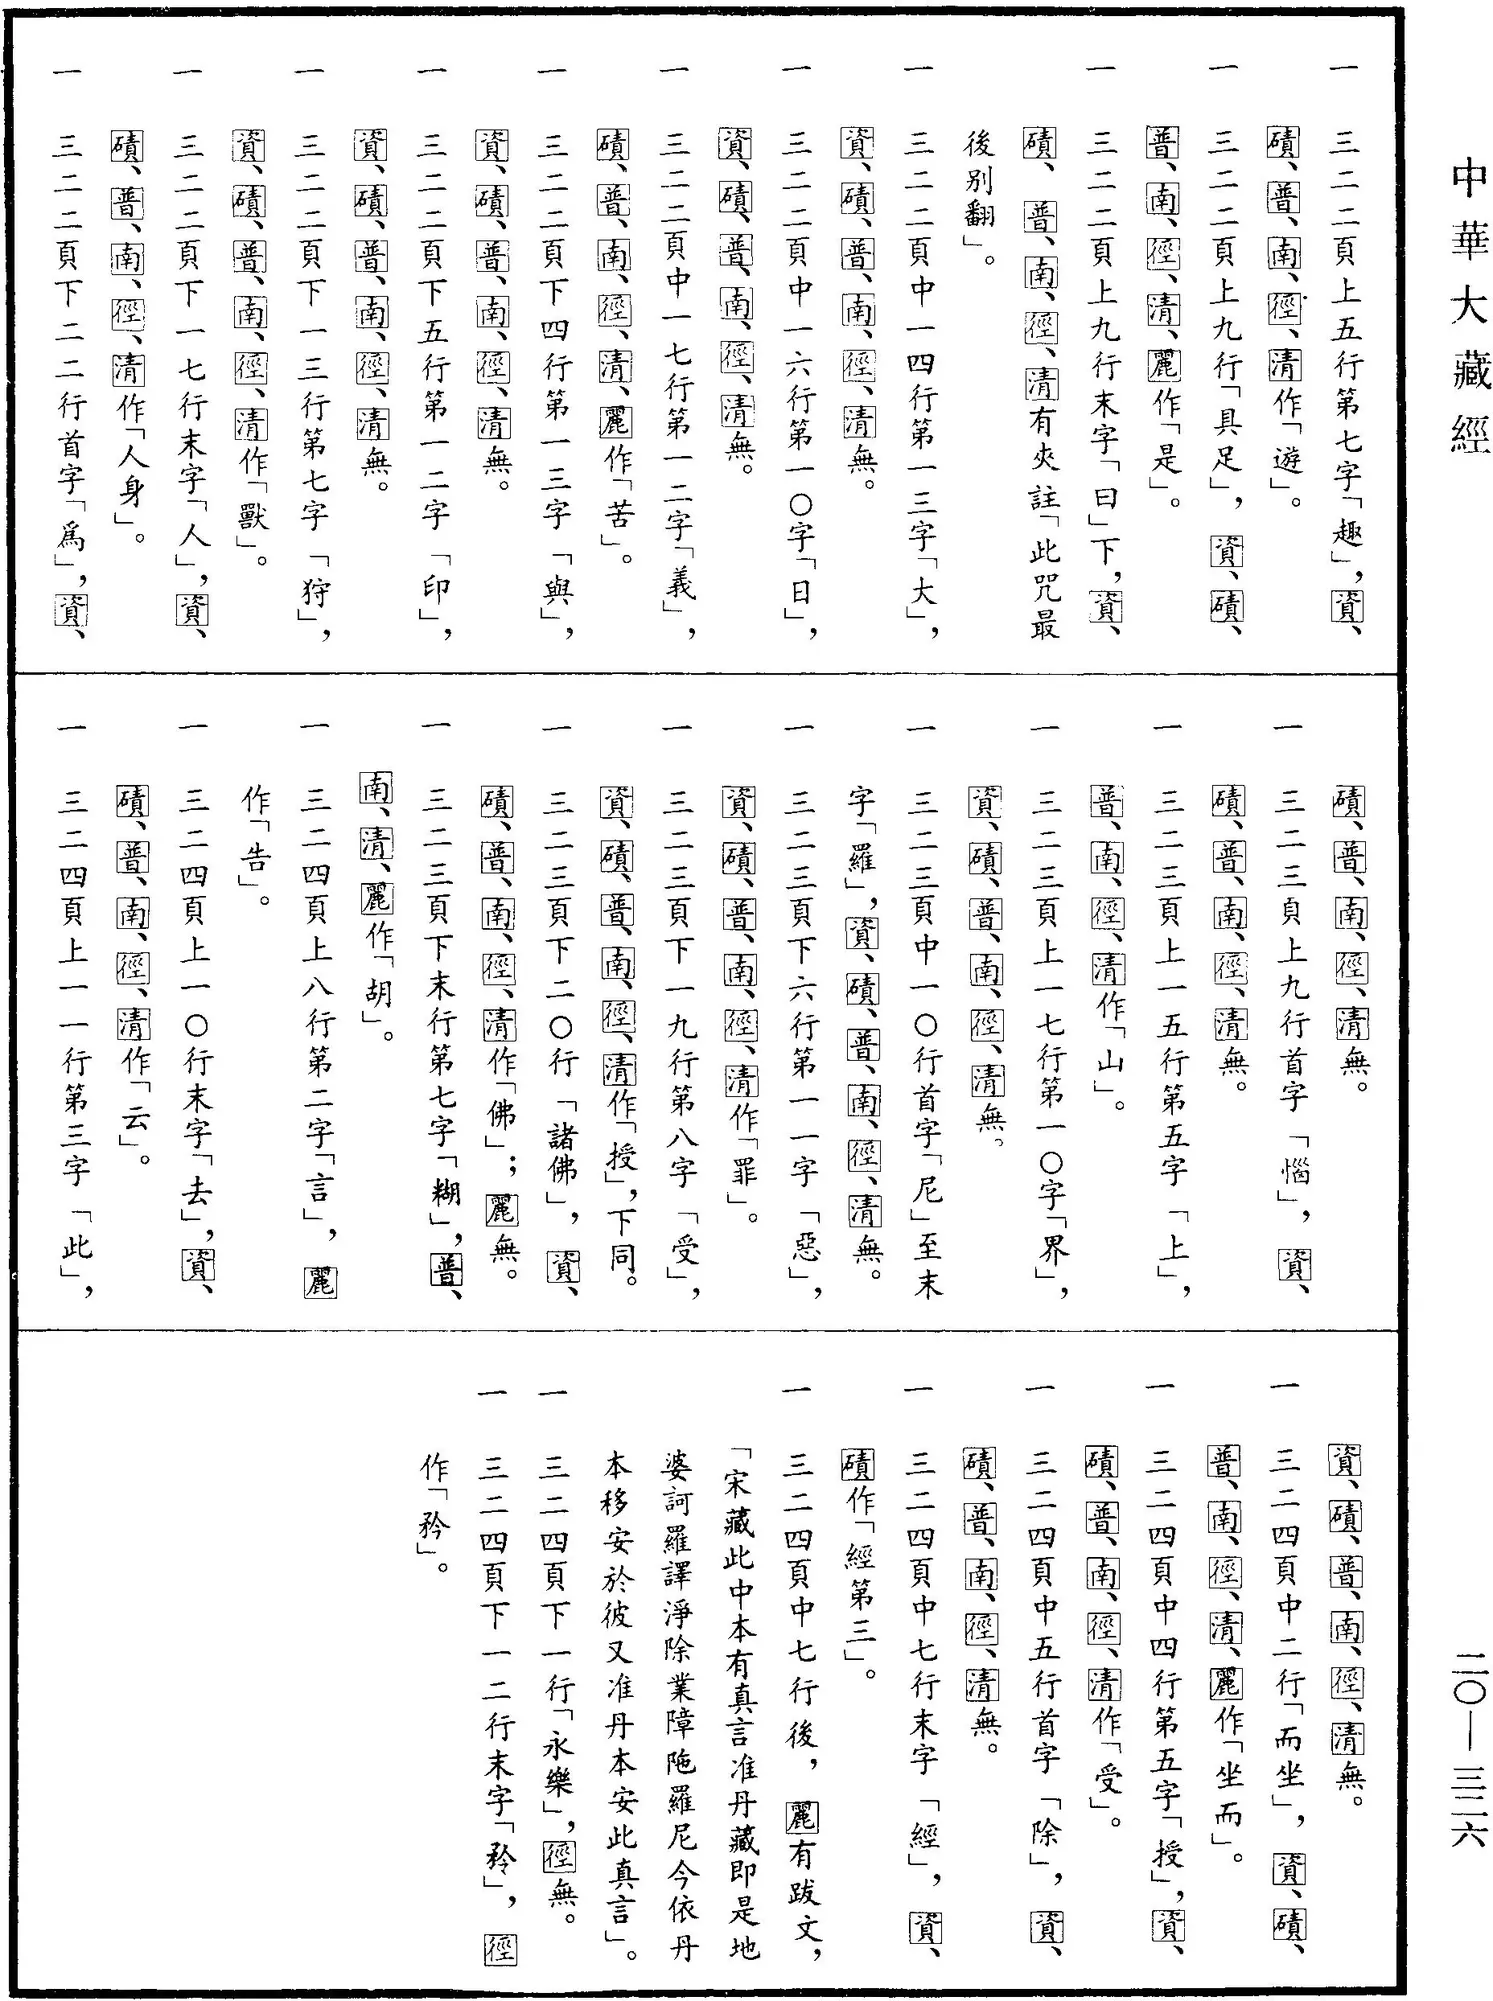 中華大藏經
一　三二二頁上五行第七字「趣」，資、
磧、普、南、徑、清作「遊」。
一　三二二頁上九行「具足」，資、磧、
普、南、徑、清、麗作「是」。
一　三二二頁上九行末字「曰」下，資、
磧、普、南、徑、清有夾註「此咒最
後別翻」。
一　三二二頁中一四行第一三字「大」，
資、磧、普、南、徑、清無。
一　三二二頁中一六行第一〇字「日」，
資、磧、普、南、徑、清無。
一　三二二頁中一七行第一二字「義」，
磧、普、南、徑、清、麗作「苦」。
一　三二二頁下四行第一三字「與」，
資、磧、普、南、徑、清無。
一　三二二頁下五行第一二字「印」，
資、磧、普、南、徑、清無。
一　三二二頁下一三行第七字「狩」，
資、磧、普、南、徑、清作「獸」。
一　三二二頁下一七行末字「人」，資、
磧、普、南、徑、清作「人身」。
一　三二二頁下二二行首字「爲」，資、
磧、普、南、徑、清無。
一　三二三頁上九行首字「惱」，資、
磧、普、南、徑、清無。
一　三二三頁上一五行第五字「上」，
普、南、徑、清作「山」。
一　三二三頁上一七行第一〇字「界」，
資、磧、普、南、徑、清無。
一　三二三頁中一〇行首字「尼」至末
字「羅」，資、磧、普、南、徑、清無。
一　三二三頁下六行第一一字「惡」，
資、磧、普、南、徑、清作「罪」。
一　三二三頁下一九行第八字「受」，
資、磧、普、南、徑、清作「授」，下同。
一　三二三頁下二〇行「諸佛」，資、
磧、普、南、徑、清作「佛」；麗無。
一　三二三頁下末行第七字「糊」，普、
南、清、麗作「胡」。
一　三二四頁上八行第二字「言」，麗
作「告」。
一　三二四頁上一〇行末字「去」，資、
磧、普、南、徑、清作「云」。
一　三二四頁上一一行第三字「此」，
資、磧、普、南、徑、清無。
一　三二四頁中二行「而坐」，資、磧、
普、南、徑、清、麗作「坐而」。
一　三二四頁中四行第五字「授」，資、
磧、普、南、徑、清作「受」。
一　三二四頁中五行首字「除」，資、
磧、普、南、徑、清無。
一　三二四頁中七行末字「經」，資、
磧作「經第三」。
一　三二四頁中七行後，麗有跋文，
「宋藏此中本有真言准丹藏即是地
婆訶羅譯淨除業障陁羅尼今依丹
本移安於彼又准丹本安此真言」。
一　三二四頁下一行「永樂」，徑無。
一　三二四頁下一二行末字「矜」，徑
作「矜」。
二〇—三二六